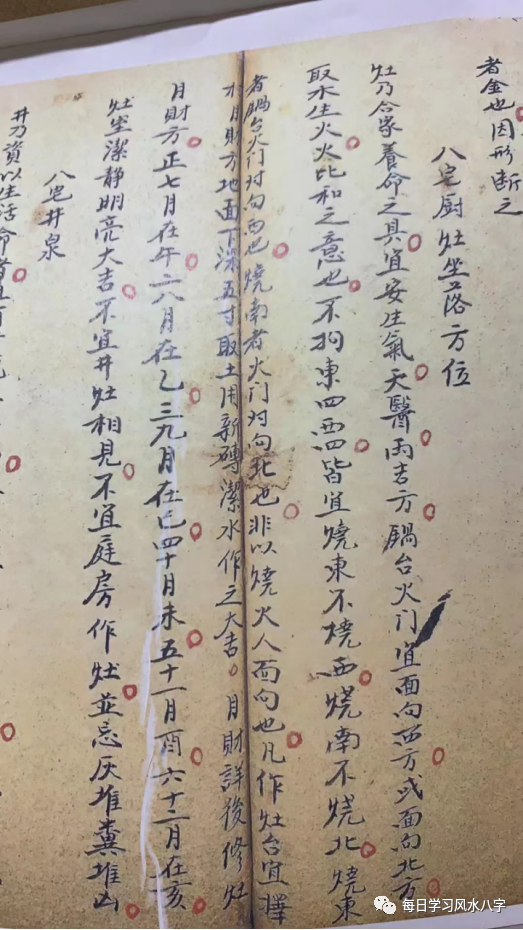 者金也因形断之
八宅厨灶坐落方位
灶乃合家養命之具宜安生氣天醫兩吉方鍋台火门宜面向西方或面向北方
取水生火火比和之意也不拘東四西四皆宜燒東不燒西燒南不燒北燒東
者鍋台火门对向西也燒南者火门对向北也非以燒火人面向也凡作灶台宜擇
月財方地面下深五寸取土用新磚潔水作之大吉月財詳後修灶
月財方正七月在午二八月在乙三九月在巳四十月未五十一月酉六十二月在亥
灶坐潔静明亮大吉不宜井灶相見不宜庭房作灶並忌灰堆糞堆凶
八宅井泉
井乃資以生活命者
每日学习风水八字